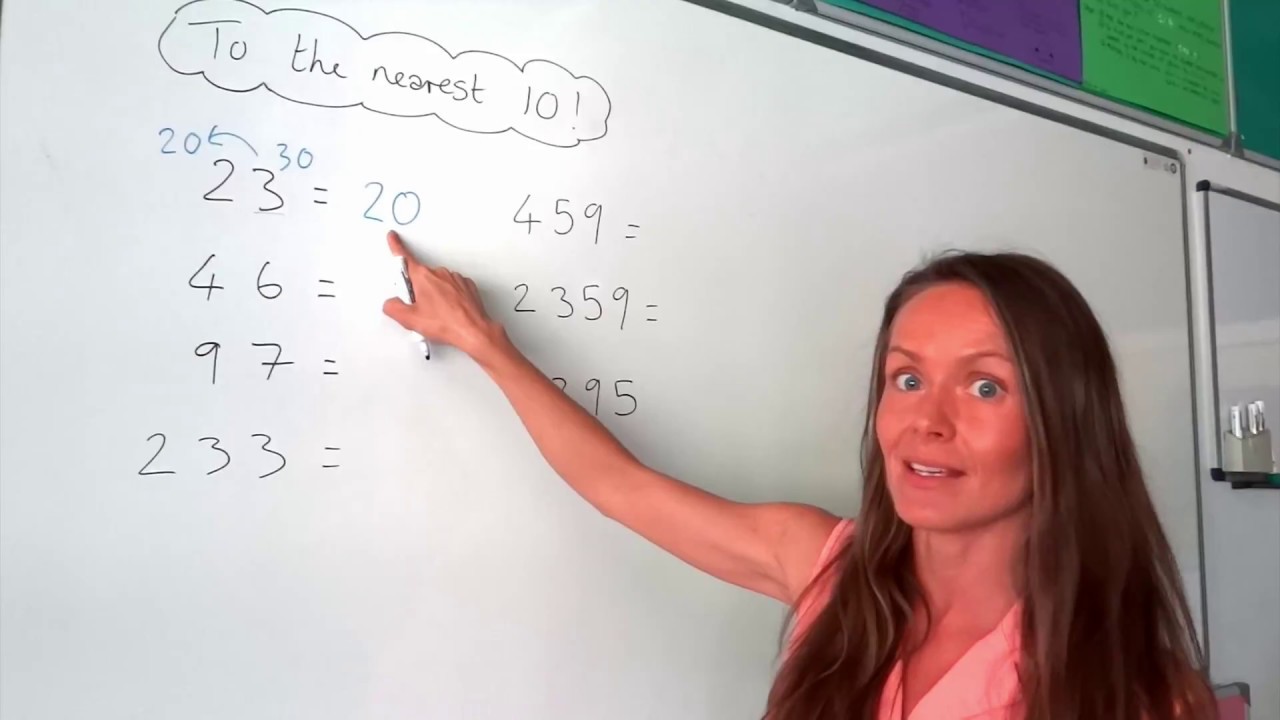 To the nearest 10!
20 30
23 = 20
46 =
97 =
233 =
459 =
2359 =
395